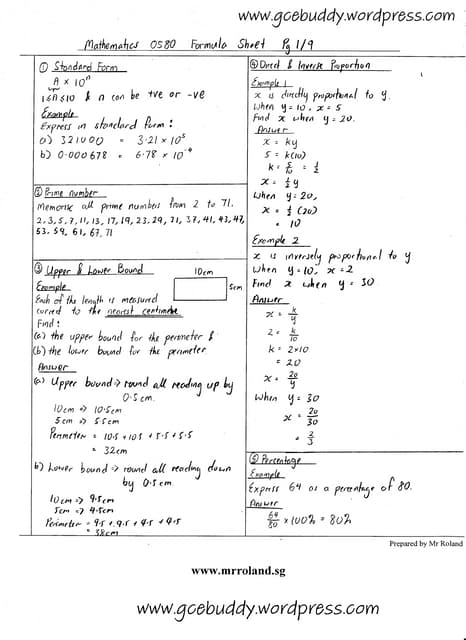 www.gcebuddy.wordpress.com
Mathematics 0580 Formula Sheet Pg 1/9
① Standard Form
A × 10ⁿ
1≤A≤10 & n can be +ve or -ve
Example
Express in standard form:
a) 321000 = 3.21 × 10⁵
b) 0.000678 = 6.78 × 10⁻⁴
② Prime number
Memorise all prime numbers from 2 to 71.
2,3,5,7,11,13,17,19,23,29,31,37,41,43,47,
53,59,61,67,71
③ Upper & Lower Bound
10cm
5cm
Example
Each of the length is measured
correct to the nearest centimetre
Find:
(a) the upper bound for the perimeter &
(b) the lower bound for the perimeter
Answer
(a) Upper bound ⇒ round all reading up by
0.5cm.
10cm ⇒ 10.5cm
5cm ⇒ 5.5cm
Perimeter = 10.5 + 10.5 + 5.5 + 5.5
= 32cm
b) Lower bound ⇒ round all reading down
by 0.5cm
10cm ⇒ 9.5cm
5cm ⇒ 4.5cm
Perimeter = 9.5 + 9.5 + 4.5 + 4.5
= 28cm
④ Direct & Inverse Proportion
Example 1
x is directly proportional to y.
When y = 10, x = 5
Find x when y = 20.
Answer
x = ky
5 = k(10)
k = 5/10 = 1/2
x = 1/2 y
When y = 20,
x = 1/2 (20)
= 10
Example 2
x is inversely proportional to y
When y = 10, x = 2
Find x when y = 30
Answer
x = k/y
2 = k/10
k = 2×10
= 20
x = 20/y
When y = 30
x = 20/30
= 2/3
⑤ Percentage
Example
Express 64 as a percentage of 80.
Answer
64/80 × 100% = 80%
Prepared by Mr Roland
www.mrroland.sg
www.gcebuddy.wordpress.com